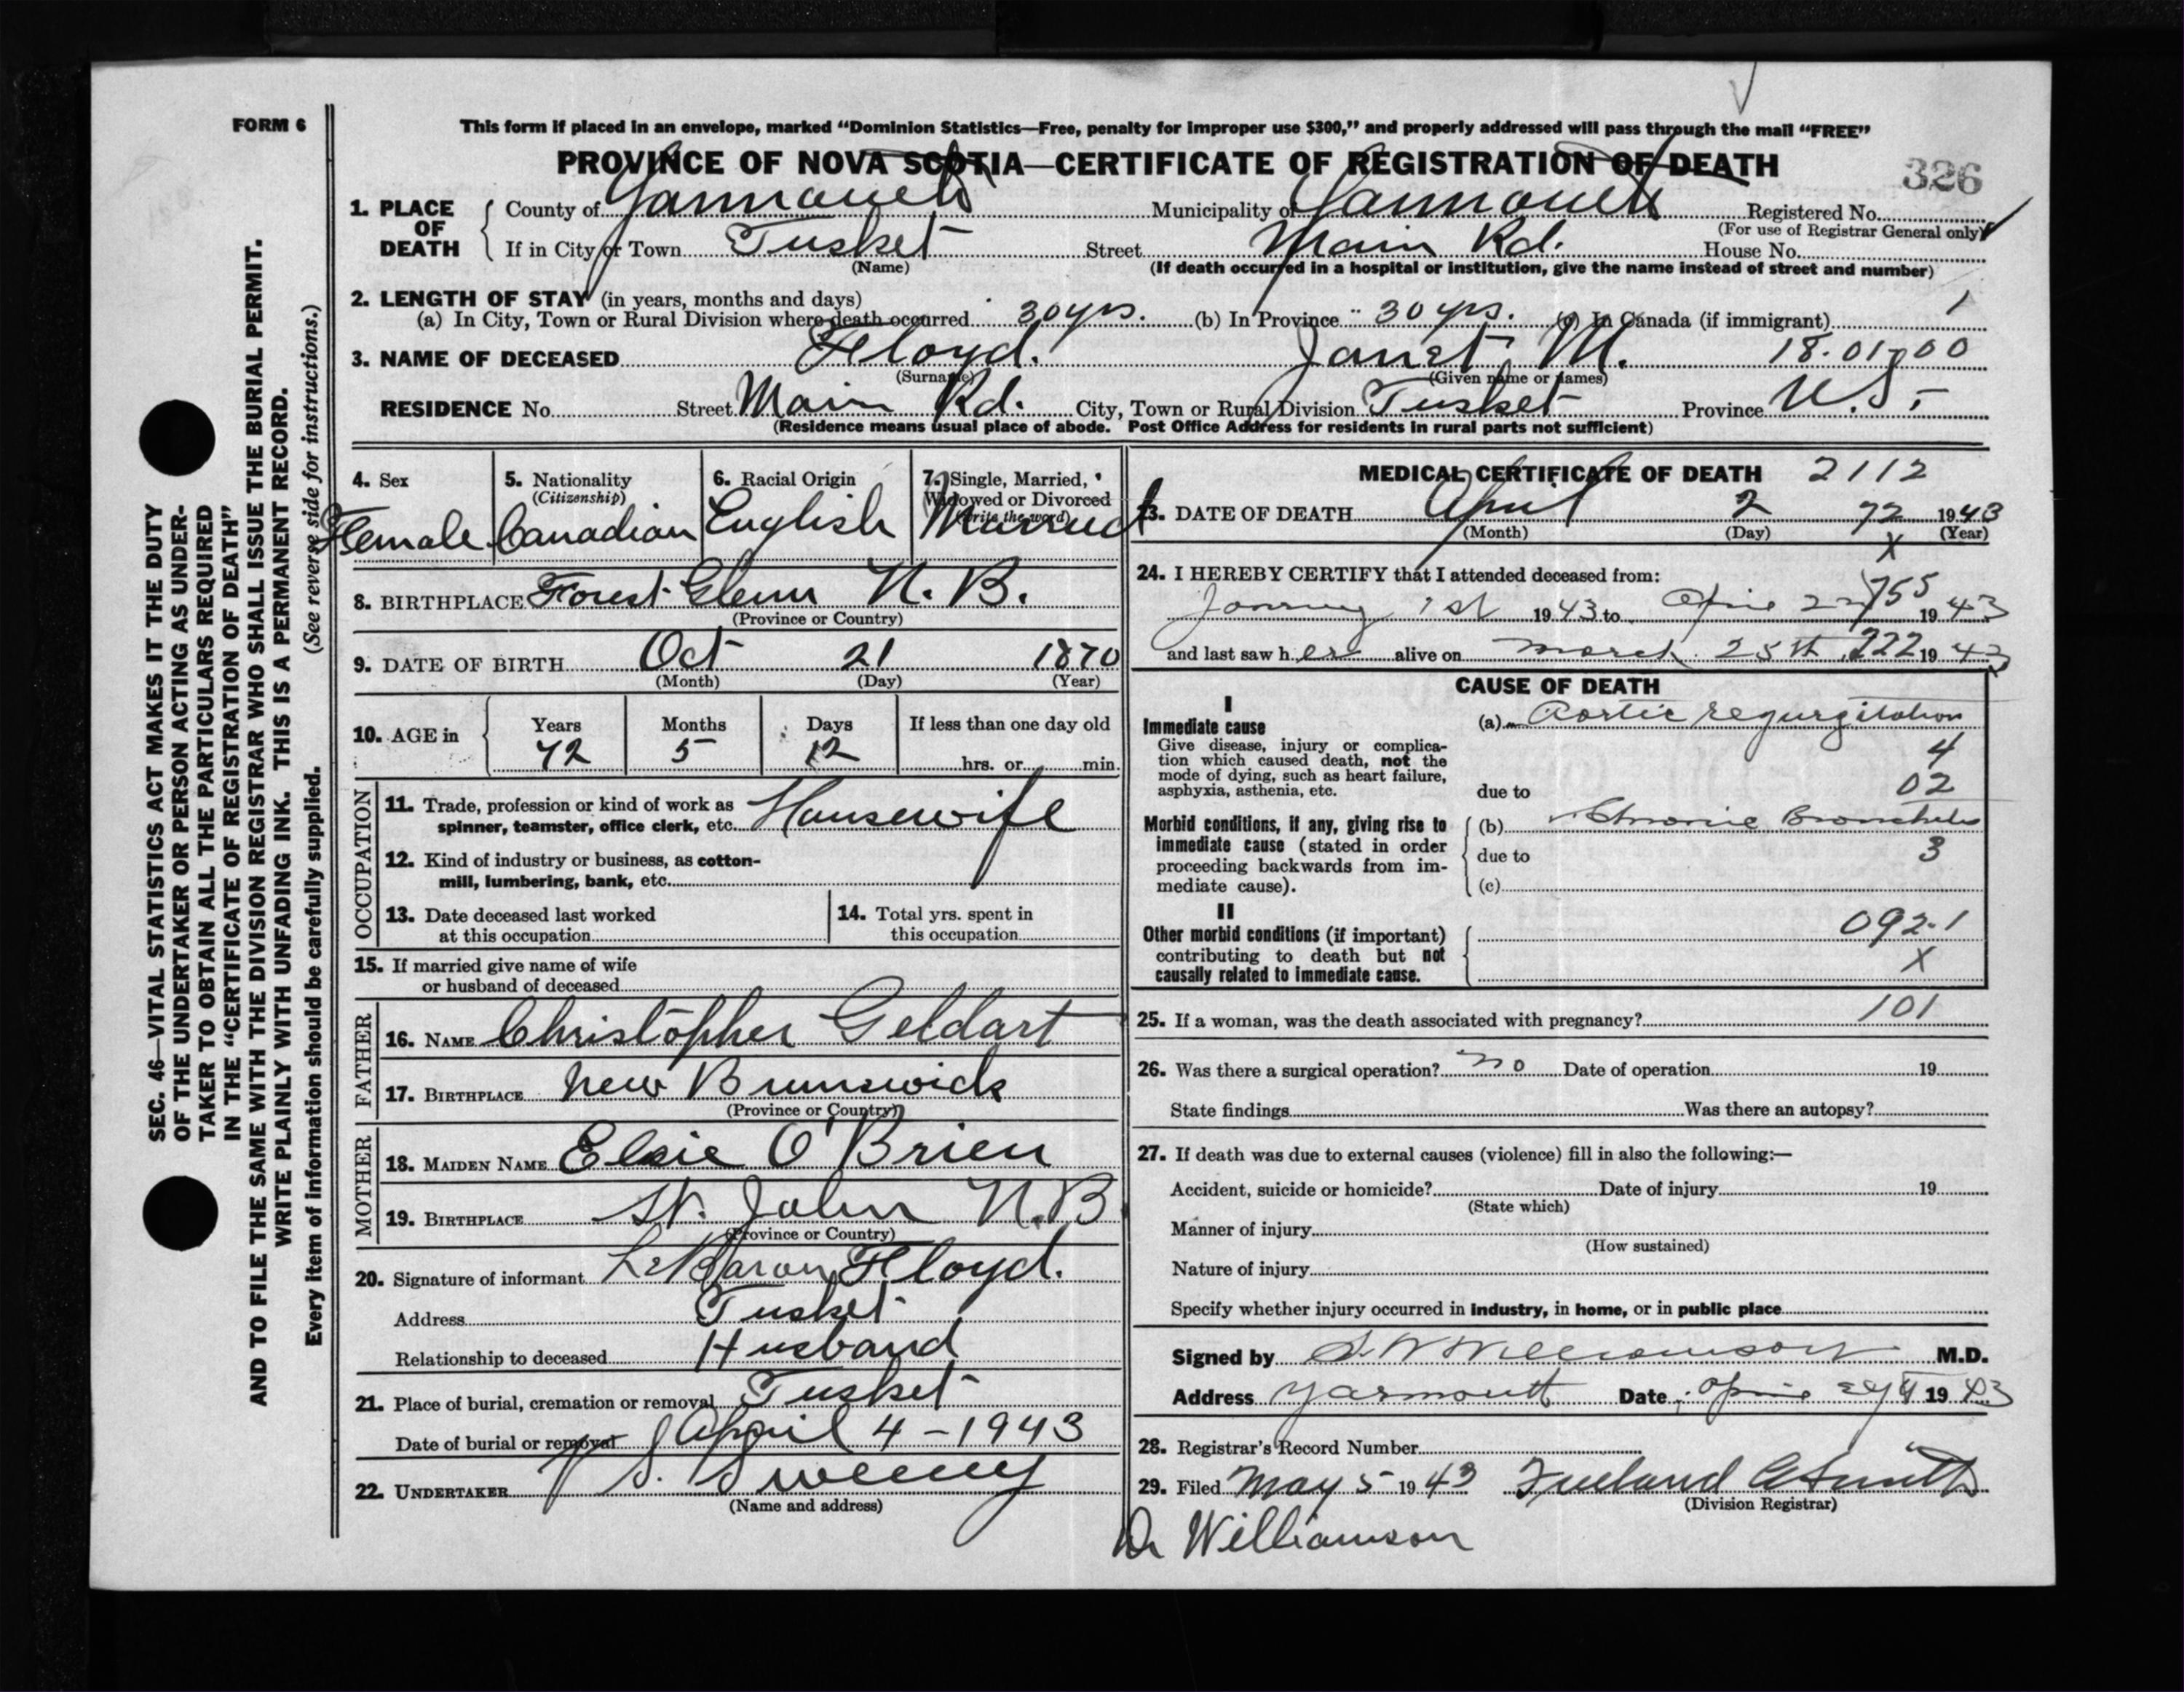 FORM 6
This form if placed in an envelope, marked “Dominion Statistics—Free, penalty for improper use $300,” and properly addressed will pass through the mail “FREE”
PROVINCE OF NOVA SCOTIA—CERTIFICATE OF REGISTRATION OF DEATH
326
1. PLACE OF DEATH { County of Yarmouth Municipality of Yarmouth Registered No.
(For use of Registrar General only)
If in City or Town Tusket Street Main Rd. House No.
(Name) (If death occurred in a hospital or institution, give the name instead of street and number)
2. LENGTH OF STAY (in years, months and days) 1
(a) In City, Town or Rural Division where death occurred 30 yrs. (b) In Province 30 yrs. (c) In Canada (if immigrant)
3. NAME OF DECEASED Floyd. Janet M. 18.01.00
(Surname) (Given name or names)
RESIDENCE No. Street Main Rd. City, Town or Rural Division Tusket Province N.S.
(Residence means usual place of abode. Post Office Address for residents in rural parts not sufficient)
4. Sex 5. Nationality 6. Racial Origin 7. Single, Married,
(Citizenship) Widowed or Divorced
(Write the word)
Female Canadian English Married
8. BIRTHPLACE Forest Glenn N. B.
(Province or Country)
9. DATE OF BIRTH Oct 21 1870
(Month) (Day) (Year)
10. AGE in { Years Months Days If less than one day old
72 5 12 hrs. or min.
OCCUPATION
11. Trade, profession or kind of work as
spinner, teamster, office clerk, etc. Housewife
12. Kind of industry or business, as cotton-
mill, lumbering, bank, etc.
13. Date deceased last worked
at this occupation
14. Total yrs. spent in
this occupation
15. If married give name of wife
or husband of deceased
FATHER
16. NAME Christopher Geldart
17. BIRTHPLACE New Brunswick
(Province or Country)
MOTHER
18. MAIDEN NAME Elsie O'Brien
19. BIRTHPLACE St. John N.B
(Province or Country)
20. Signature of informant LeBaron Floyd.
Address Tusket
Relationship to deceased Husband
21. Place of burial, cremation or removal Tusket
Date of burial or removal April 4 - 1943
22. UNDERTAKER V S. Sweeney
(Name and address)
MEDICAL CERTIFICATE OF DEATH 2112
23. DATE OF DEATH April 2 72 1943
(Month) (Day) (Year)
X
24. I HEREBY CERTIFY that I attended deceased from:
1st 1943 to 755 1943
and last saw her alive on March 25th 222 1943
CAUSE OF DEATH
I
Immediate cause (a) Aortic regurgitation
Give disease, injury or complica-
tion which caused death, not the 4
mode of dying, such as heart failure,
asphyxia, asthenia, etc. due to 02
Morbid conditions, if any, giving rise to (b) Chronic Bronchitis
immediate cause (stated in order due to 3
proceeding backwards from im-
mediate cause). (c)
II
Other morbid conditions (if important) 092.1
contributing to death but not
causally related to immediate cause. X
25. If a woman, was the death associated with pregnancy? 101
26. Was there a surgical operation? no Date of operation 19
State findings Was there an autopsy?
27. If death was due to external causes (violence) fill in also the following:—
Accident, suicide or homicide? Date of injury 19
(State which)
Manner of injury
(How sustained)
Nature of injury
Specify whether injury occurred in industry, in home, or in public place
Signed by Williamson M.D.
Address Yarmouth Date 1943
28. Registrar's Record Number
29. Filed May 5 1943 Smith
(Division Registrar)
Dr Williamson
SEC. 46—VITAL STATISTICS ACT MAKES IT THE DUTY
OF THE UNDERTAKER OR PERSON ACTING AS UNDER-
TAKER TO OBTAIN ALL THE PARTICULARS REQUIRED
IN THE “CERTIFICATE OF REGISTRATION OF DEATH”
AND TO FILE THE SAME WITH THE DIVISION REGISTRAR WHO SHALL ISSUE THE BURIAL PERMIT.
WRITE PLAINLY WITH UNFADING INK. THIS IS A PERMANENT RECORD.
Every item of information should be carefully supplied. (See reverse side for instructions.)